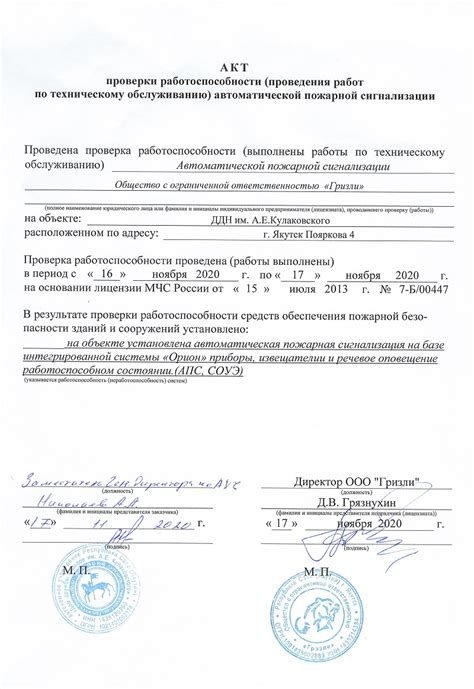 АКТ
проверки работоспособности (проведения работ
по техническому обслуживанию) автоматической пожарной сигнализации
Проведена проверка работоспособности (выполнены работы по техническому
обслуживанию) Автоматической пожарной сигнализации
Общество с ограниченной ответственностью «Гризли»
(полное наименование юридического лица или фамилия и инициалы индивидуального предпринимателя (лицензиата), проводившего проверку (работы))
на объекте: ДДН им. А.Е.Кулаковского
расположенном по адресу: г. Якутск Пояркова 4
Проверка работоспособности проведена (работы выполнены)
в период с « 16 » ноября 2020 г. по « 17 » ноября 2020 г.
на основании лицензии МЧС России от « 15 » июля 2013 г. № 7-Б/00447
В результате проверки работоспособности средств обеспечения пожарной безо-
пасности зданий и сооружений установлено:
на объекте установлена автоматическая пожарная сигнализация на базе
интегрированной системы «Орион» приборы, извещатели и речевое оповещение
работоспособном состоянии.(АПС, СОУЭ)
(указывается работоспособность (неработоспособность) систем)
Заместитель Ген директора по АХЧ
(должность)
Николаев А.А.
(фамилия и инициалы представителя заказчика)
«17» 11 2020 г.
(подпись)
М. П.
Директор ООО "Гризли"
(должность)
Д.В. Грязнухин
(фамилия и инициалы представителя подрядчика (лицензиата))
« 17 » ноября 2020 г.
(подпись)
М. П.
«Гризли»